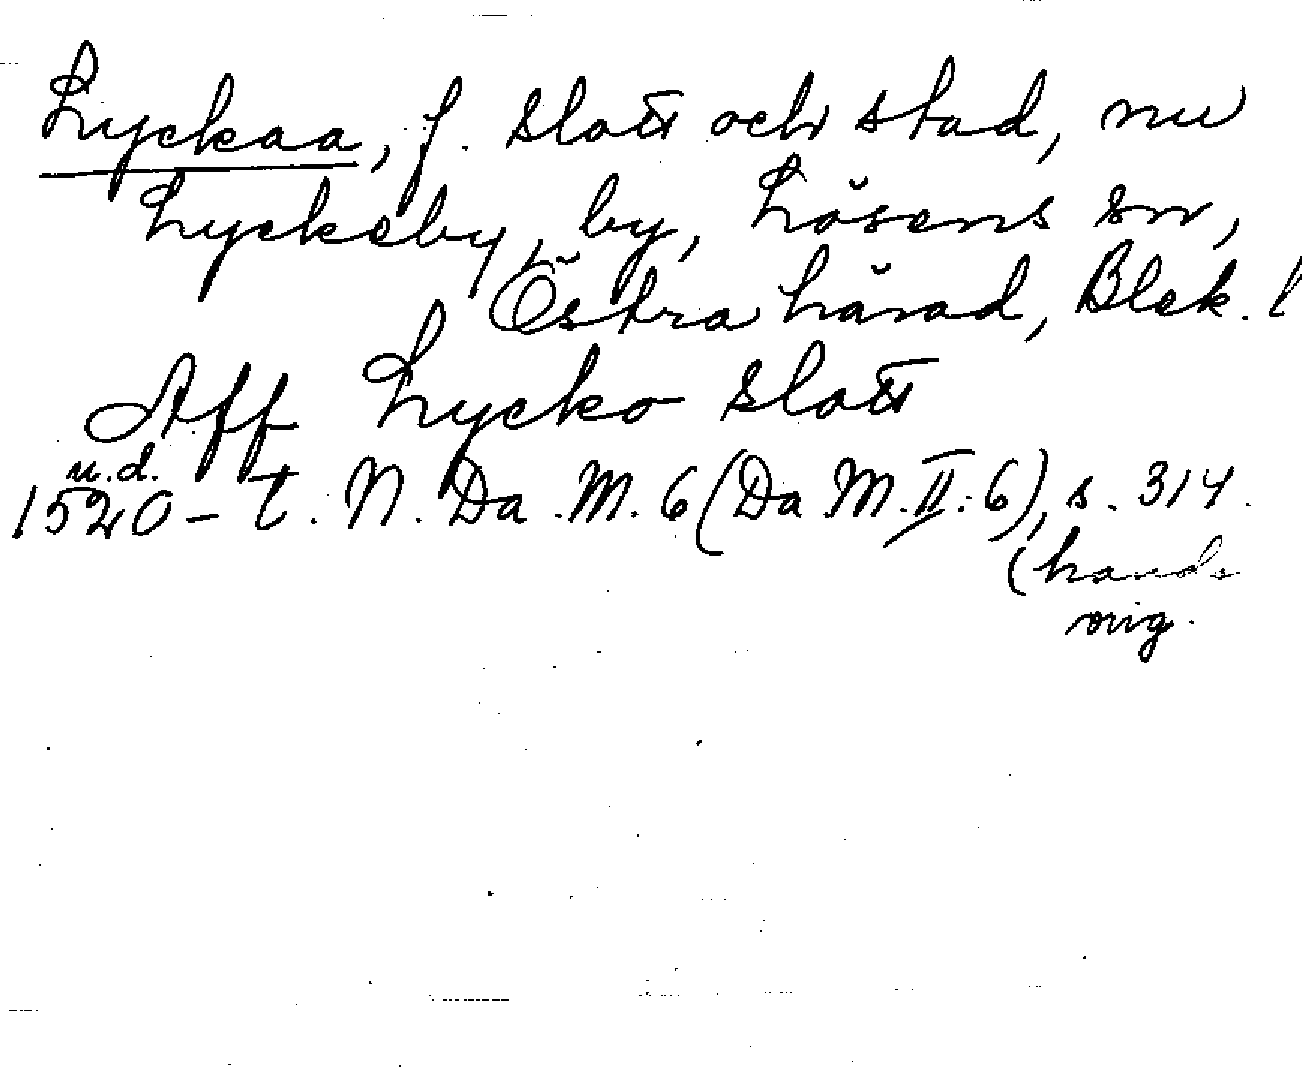 Lyckaa, f. slott och stad, nu
Lyckeby, by, Lösens sn,
Östra härad, Blek. l
Aff Lycko slott
u.d.
1520-t. N. Da. M. 6 (Da M. II:6), s. 314.
(hands
orig.